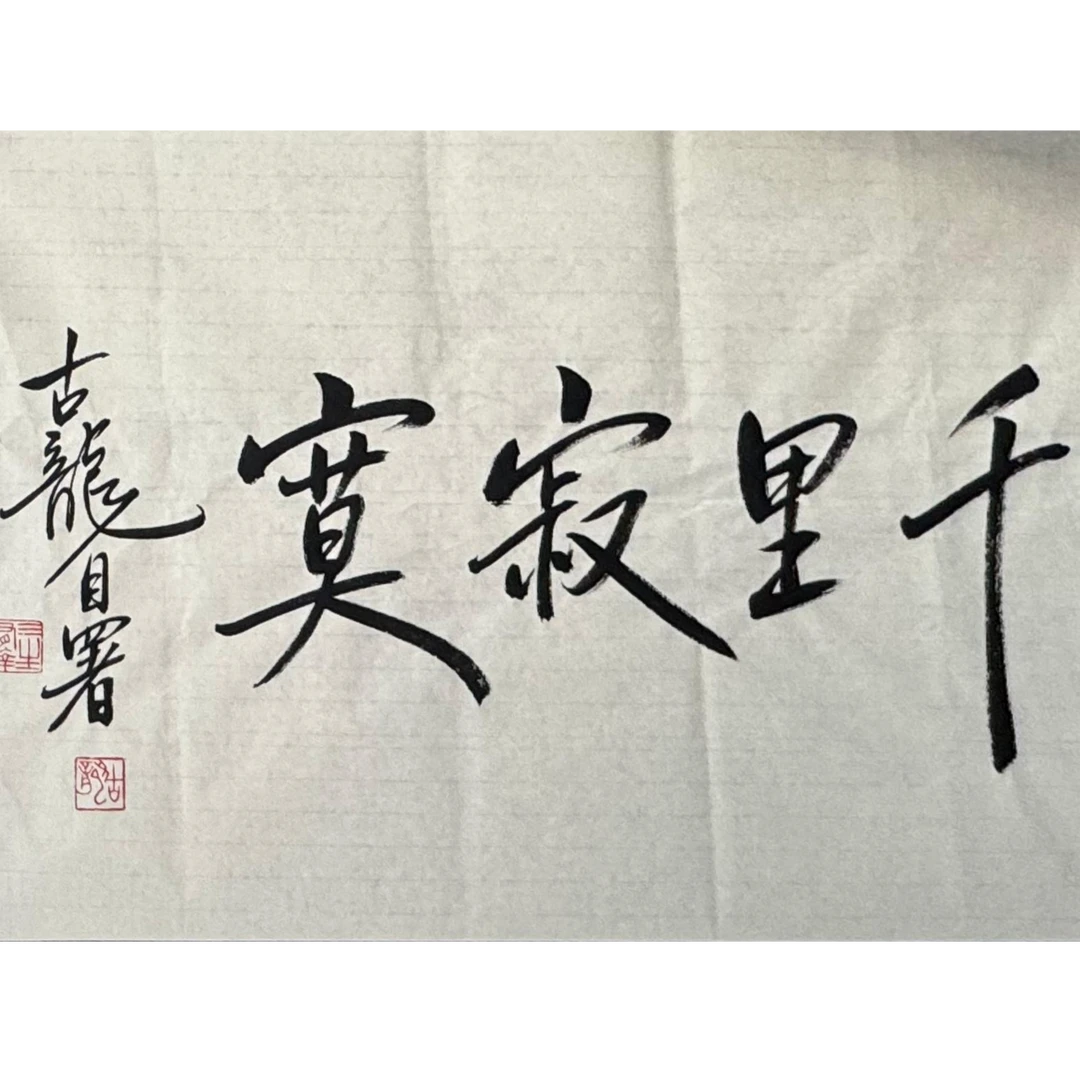 千里寂寞
古龍自署
古龍